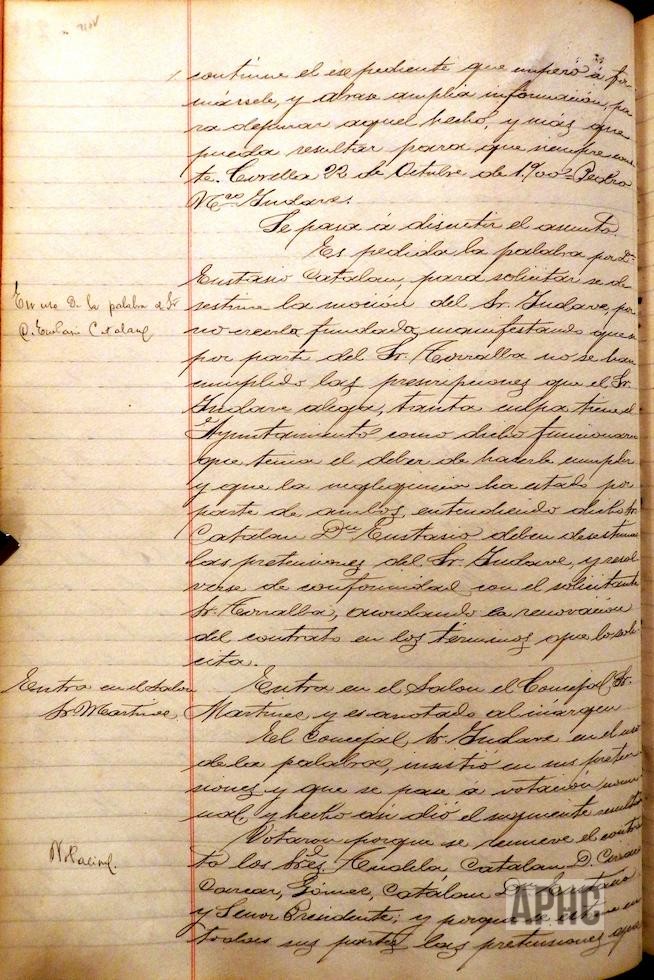 continue el espediente que imperó á for-
mársele, y abrase amplia información, pa
ra depurar aquel hecho, y más que
pueda resultar para que siempre cons
te. Corella 22 de Octubre de 1900 = Pedro
Mº Gudave.
Se pasa á discutir el asunto
Es pedida la palabra por Dn
Eustasio Catalan, para solicitar se de-
sestime la moción del Sr. Gudave, por
no creerla fundada, manifestando que si
por parte del Sr. Torralba no se han
cumplido las prescripciones que el Sr.
Gudave alega, tanta culpa tiene el
Ayuntamiento como dicho funcionario
que tenia el deber de hacerle cumplir
y que la negligencia ha estado por
parte de ambos, entendiendo dicho Sr.
Catalan Dn Eustasio deben desestimarse
las pretensiones del Sr. Gudave, y resol
verse de conformidad con el solicitante
Sr. Torralba, acordando la renovación
del contrato en los términos que lo soli
cita.
En uso de la palabra el Sr
D. Eustasio Catalan
Entra en el Salon
Sr. Martinez
Entra en el Salon el Concejal Sr.
Martinez y es anotado al márgen
El Concejal Sr. Gudave en el uso
de la palabra, insistió en sus preten
siones y que se pase a votación nomi
nal, y hecho asi dió el siguiente resultado
Votación
Votaron porque se renueve el contra
to los Sres. Tudela, Catalan D.
Carcar, Gómez, Catalan Dn Eustasio
y Señor Presidente; y porque se en
todas sus partes las pretensiones que
APHC